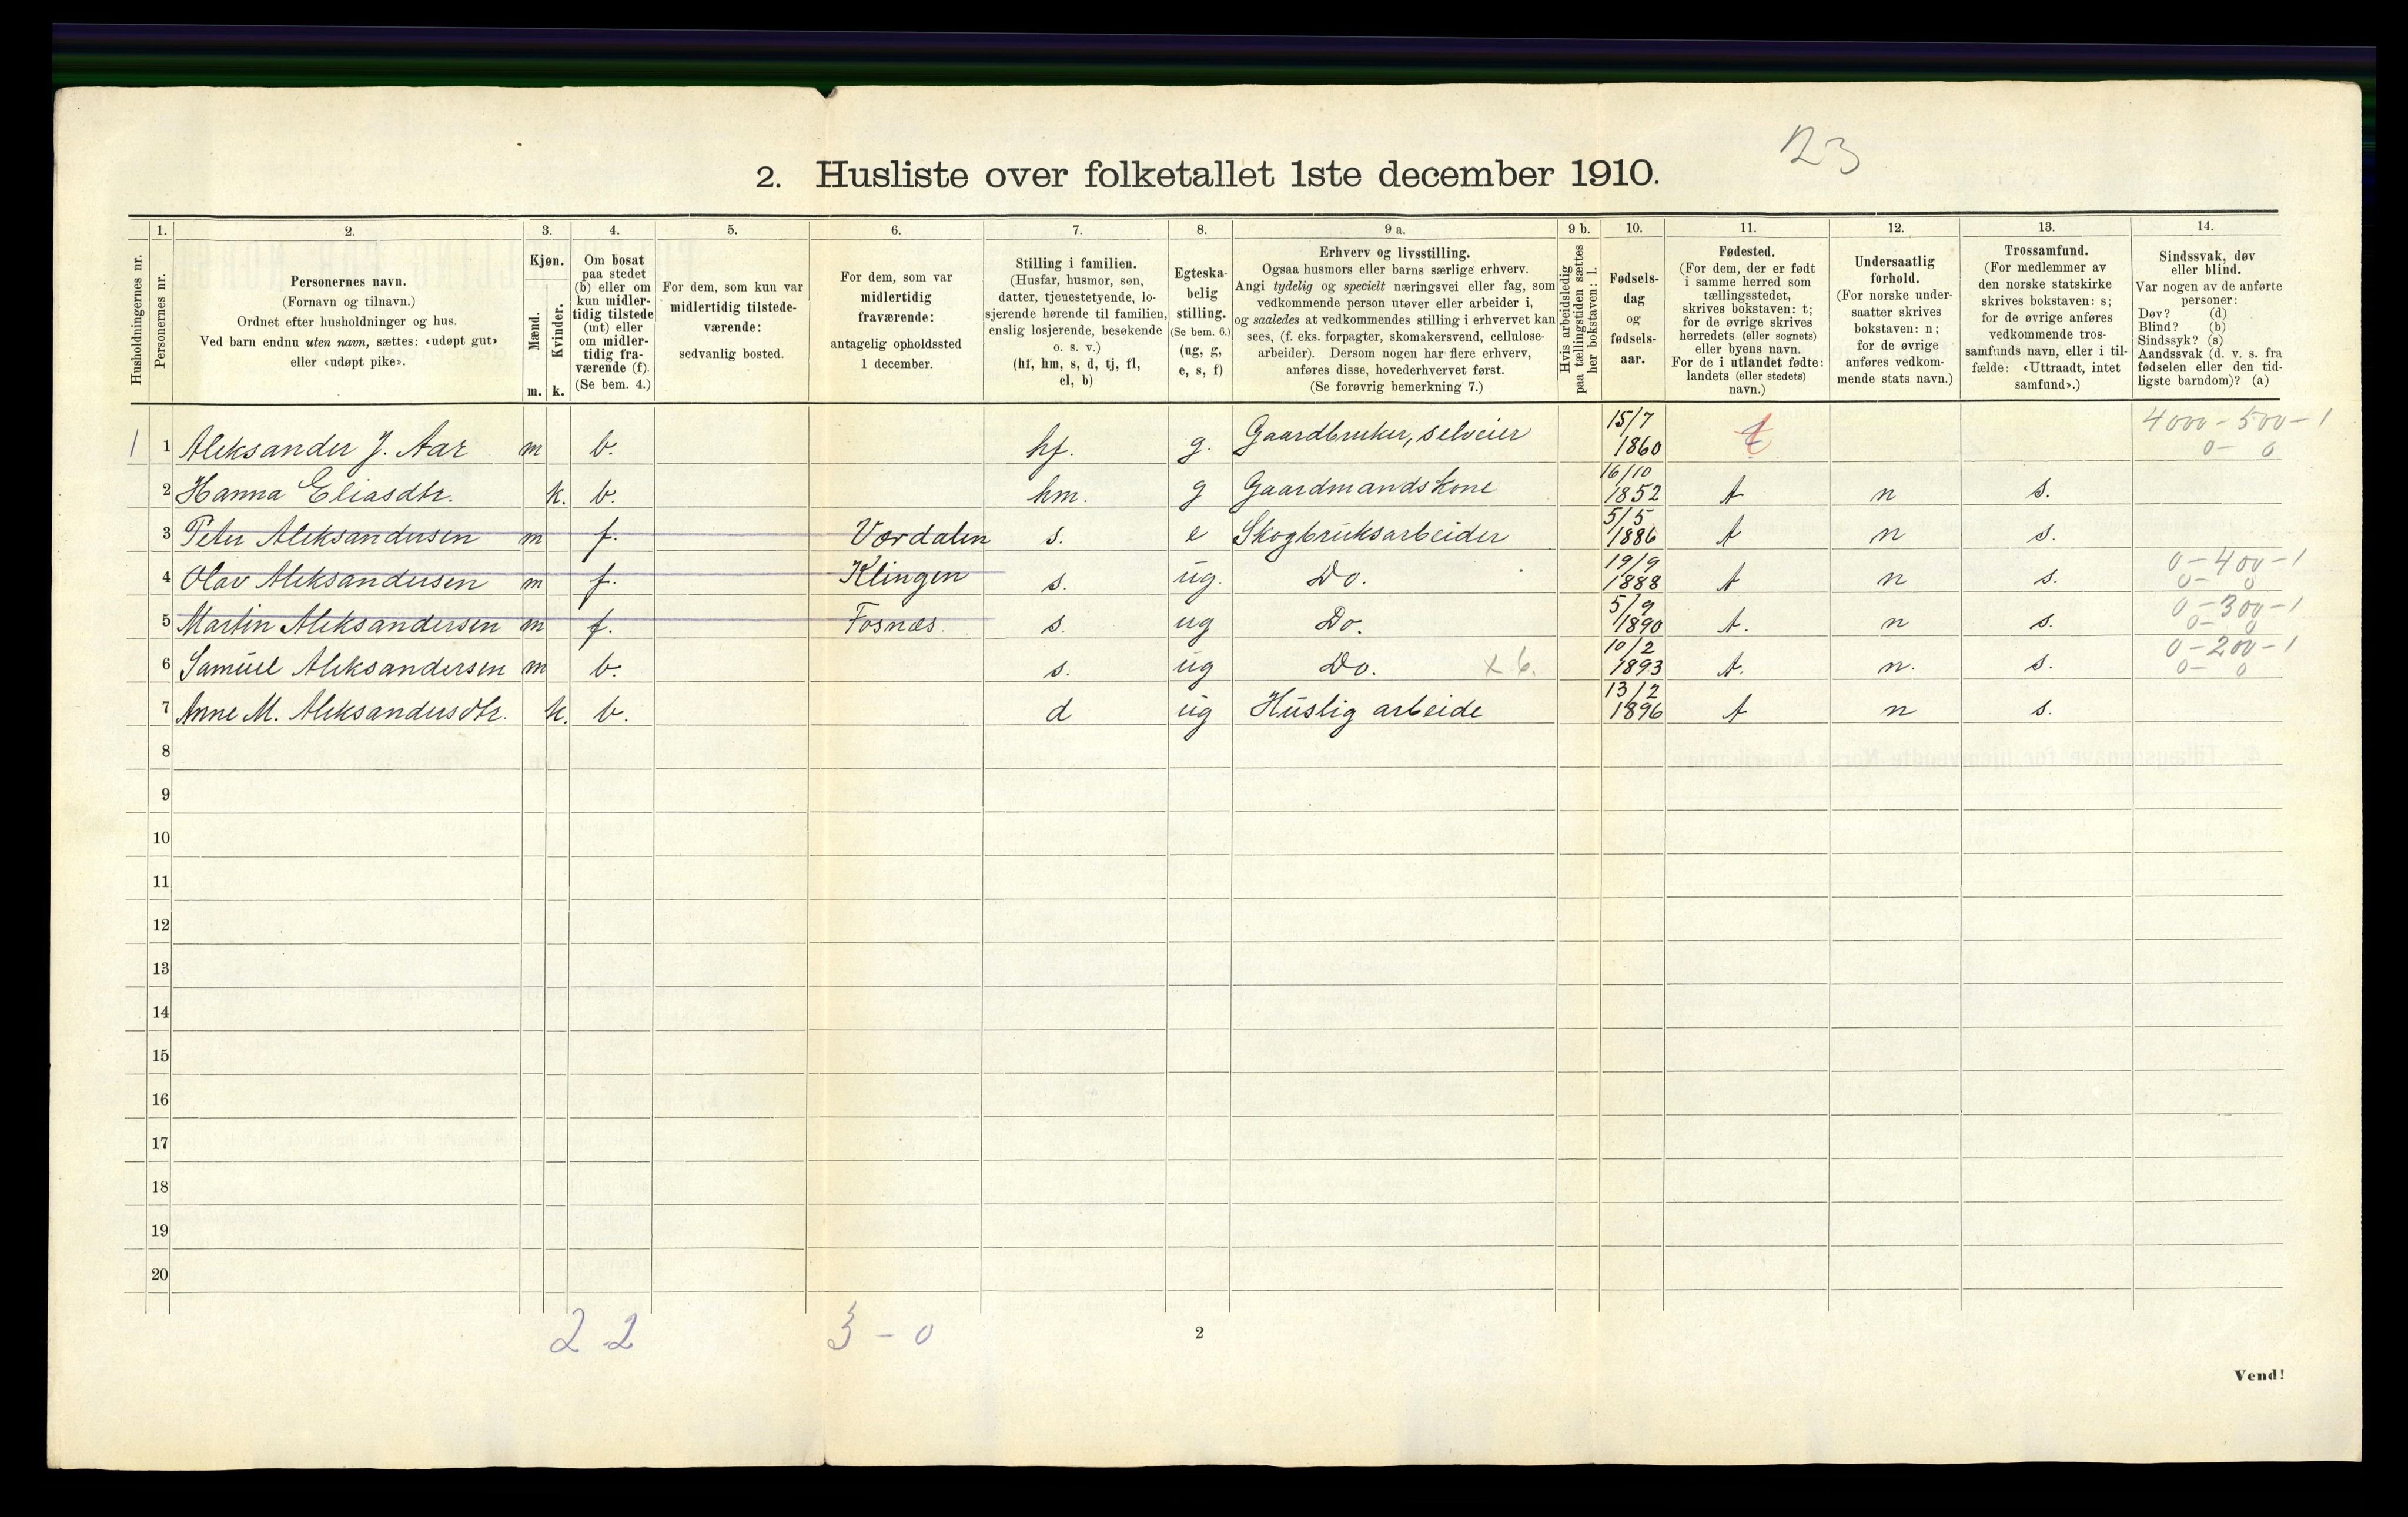 23
2. Husliste over folketallet 1ste december 1910.
Husholdningernes nr.
1.
Personernes nr.
2.
Personernes navn.
(Fornavn og tilnavn.)
Ordnet efter husholdninger og hus.
Ved barn endnu uten navn, sættes: «udøpt gut»
eller «udøpt pike».
3.
Kjøn.
Mænd.
Kvinder.
m. k.
4.
Om bosat
paa stedet
(b) eller om
kun midler-
tidig tilstede
(mt) eller
om midler-
tidig fra-
værende (f).
(Se bem. 4.)
5.
For dem, som kun var
midlertidig tilstede-
værende:
sedvanlig bosted.
6.
For dem, som var
midlertidig
fraværende:
antagelig opholdssted
1 december.
7.
Stilling i familien.
(Husfar, husmor, søn,
datter, tjenestetyende, lo-
sjerende hørende til familien,
enslig losjerende, besøkende
o. s. v.)
(hf, hm, s, d, tj, fl,
el, b)
8.
Egteska-
belig
stilling.
(Se bem. 6.)
(ug, g,
e, s, f)
9 a.
Erhverv og livsstilling.
Ogsaa husmors eller barns særlige erhverv.
Angi tydelig og specielt næringsvei eller fag, som
vedkommende person utøver eller arbeider i,
og saaledes at vedkommendes stilling i erhvervet kan
sees, (f. eks. forpagter, skomakersvend, cellulose-
arbeider). Dersom nogen har flere erhverv,
anføres disse, hovederhvervet først.
(Se forøvrig bemerkning 7.)
9 b.
Hvis arbeidsledig
paa tællingstiden sættes
her bokstaven: l.
10.
Fødsels-
dag
og
fødsels-
aar.
11.
Fødested.
(For dem, der er født
i samme herred som
tællingsstedet,
skrives bokstaven: t;
for de øvrige skrives
herredets (eller sognets)
eller byens navn.
For de i utlandet fødte:
landets (eller stedets)
navn.)
12.
Undersaatlig
forhold.
(For norske under-
saatter skrives
bokstaven: n;
for de øvrige
anføres vedkom-
mende stats navn.)
13.
Trossamfund.
(For medlemmer av
den norske statskirke
skrives bokstaven: s;
for de øvrige anføres
vedkommende tros-
samfunds navn, eller i til-
fælde: «Uttraadt, intet
samfund».)
14.
Sindssvak, døv
eller blind.
Var nogen av de anførte
personer:
Døv? (d)
Blind? (b)
Sindssyk? (s)
Aandssvak (d. v. s. fra
fødselen eller den tid-
ligste barndom)? (a)
1 1 Aleksander J. Aar m b. hf. g. Gaardbruker, selveier 15/7 1860 t 4000-500-1 0- 0
2 Hanna Eliasdtr. k. b. hm. g Gaardmandskone 16/10 1852 t n s.
3 Peter Aleksandersen m f. Værdalen s. e Skogbruksarbeider 5/5 1886 t n s.
4 Olav Aleksandersen m f. Klingen s. ug. Do. 19/9 1888 t n s. 0-400-1 0- 0
5 Martin Aleksandersen m f. Fosnæs. s. ug Do. 5/9 1890 t. n s. 0-300-1 0- 0
6 Samuel Aleksandersen m b. s. ug Do. x 6. 10/2 1893 t. n. s. 0-200-1 0- 0
7 Anne M. Aleksandersdtr. k. b. d ug Huslig arbeide 13/2 1896 t n s.
8
9
10
11
12
13
14
15
16
17
18
19
20
2 2 3 - 0
2
Vend!